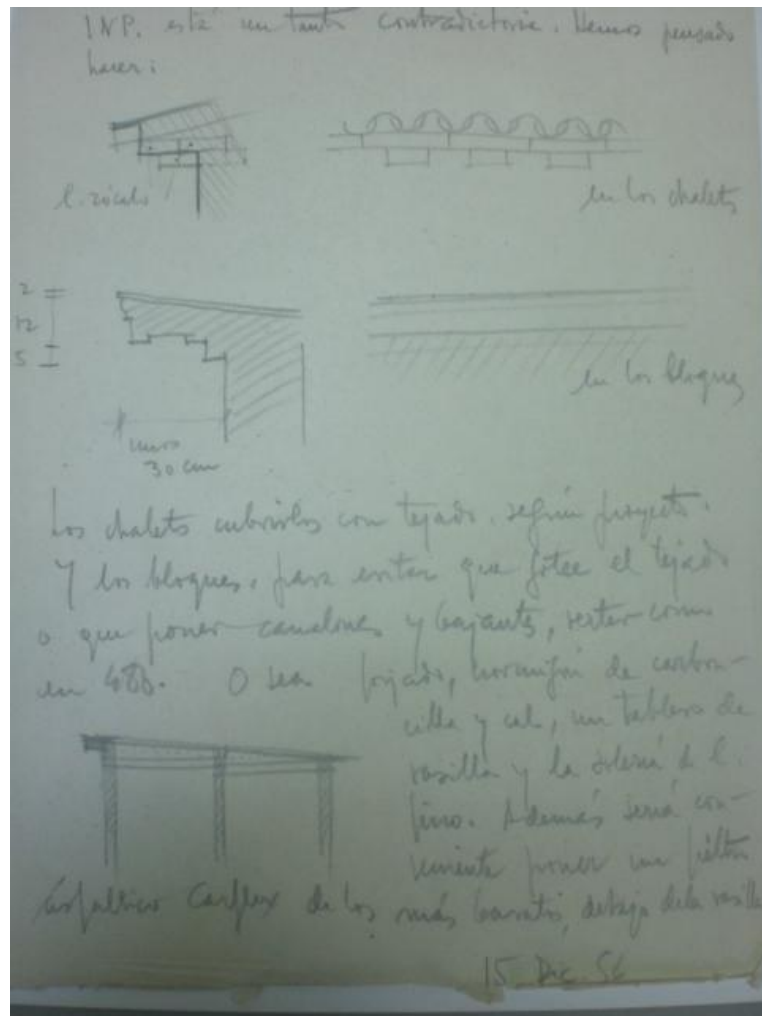 INP. está un tanto contradictorio. Hemos pensado
hacer:
l. zócalo
en los chalets
2
12
5
en los bloques
muro
30 cm
Los chalets cubrirlos con tejado, según proyecto.
Y los bloques, para evitar que gotee el tejado
o que poner canalones y bajantes, verter como
en 480. O sea forjado, hormigón de carbon-
cilla y cal, un tablero de
rasilla y la solería de l.
fino. Además sería con-
veniente poner un fieltro
asfáltico de los más baratos, debajo de la rasilla
15 Dic. 56